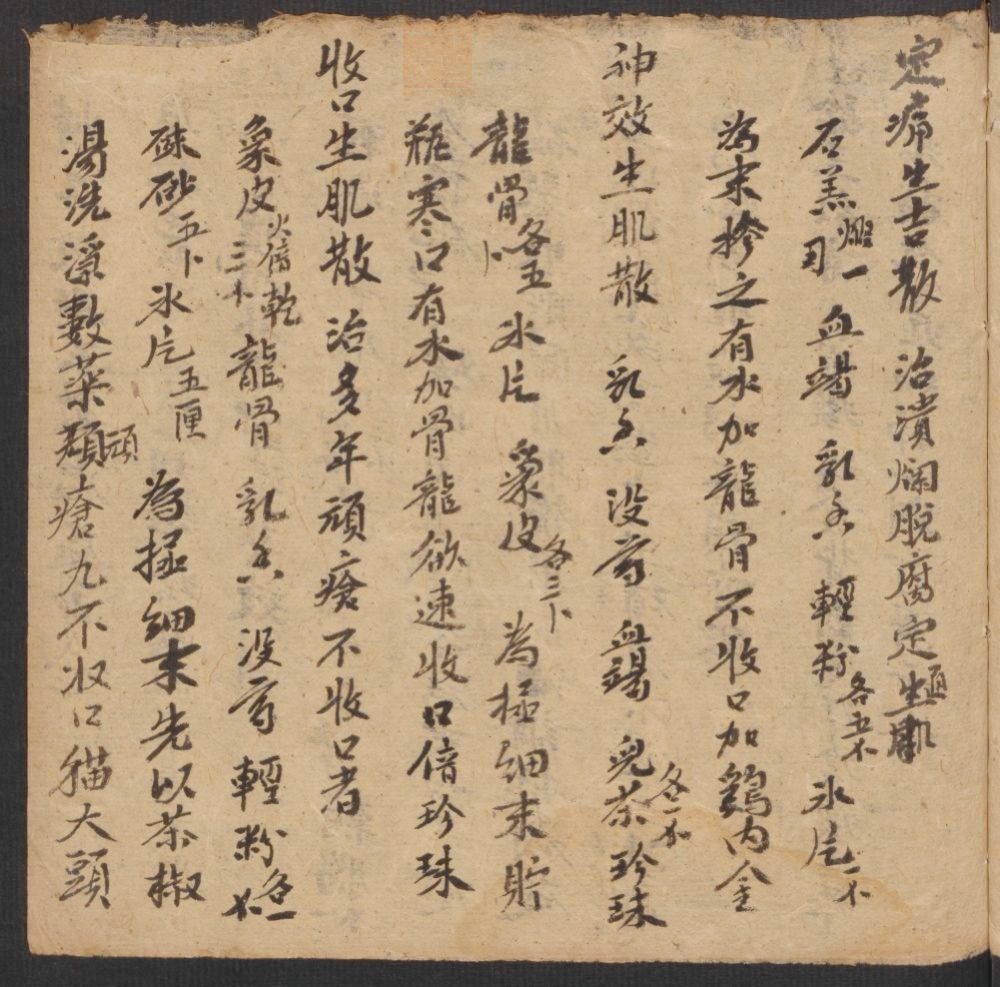 定痛生吉散 治潰爛脫腐定痛生肌
石羔 煅一 血竭 乳香 輕粉 各五 氷片 一
為末摻之有水加龍骨不收口加鷄內金
神效生肌散 乳香 没药 血竭 児茶 各一 珍珠
龍骨 各五 氷片 象皮 各三 為極細末貯
瓶寒口有水加骨龍欲速收口倍珍珠
收口生肌散 治多年頑瘡不收口者
象皮 火焙乾三 龍骨 乳香 没药 輕粉 各一
硃砂 五 氷片 五厘 為極細末先以茶椒
湯洗淨敷藥頑瘡九不収口猫大頭